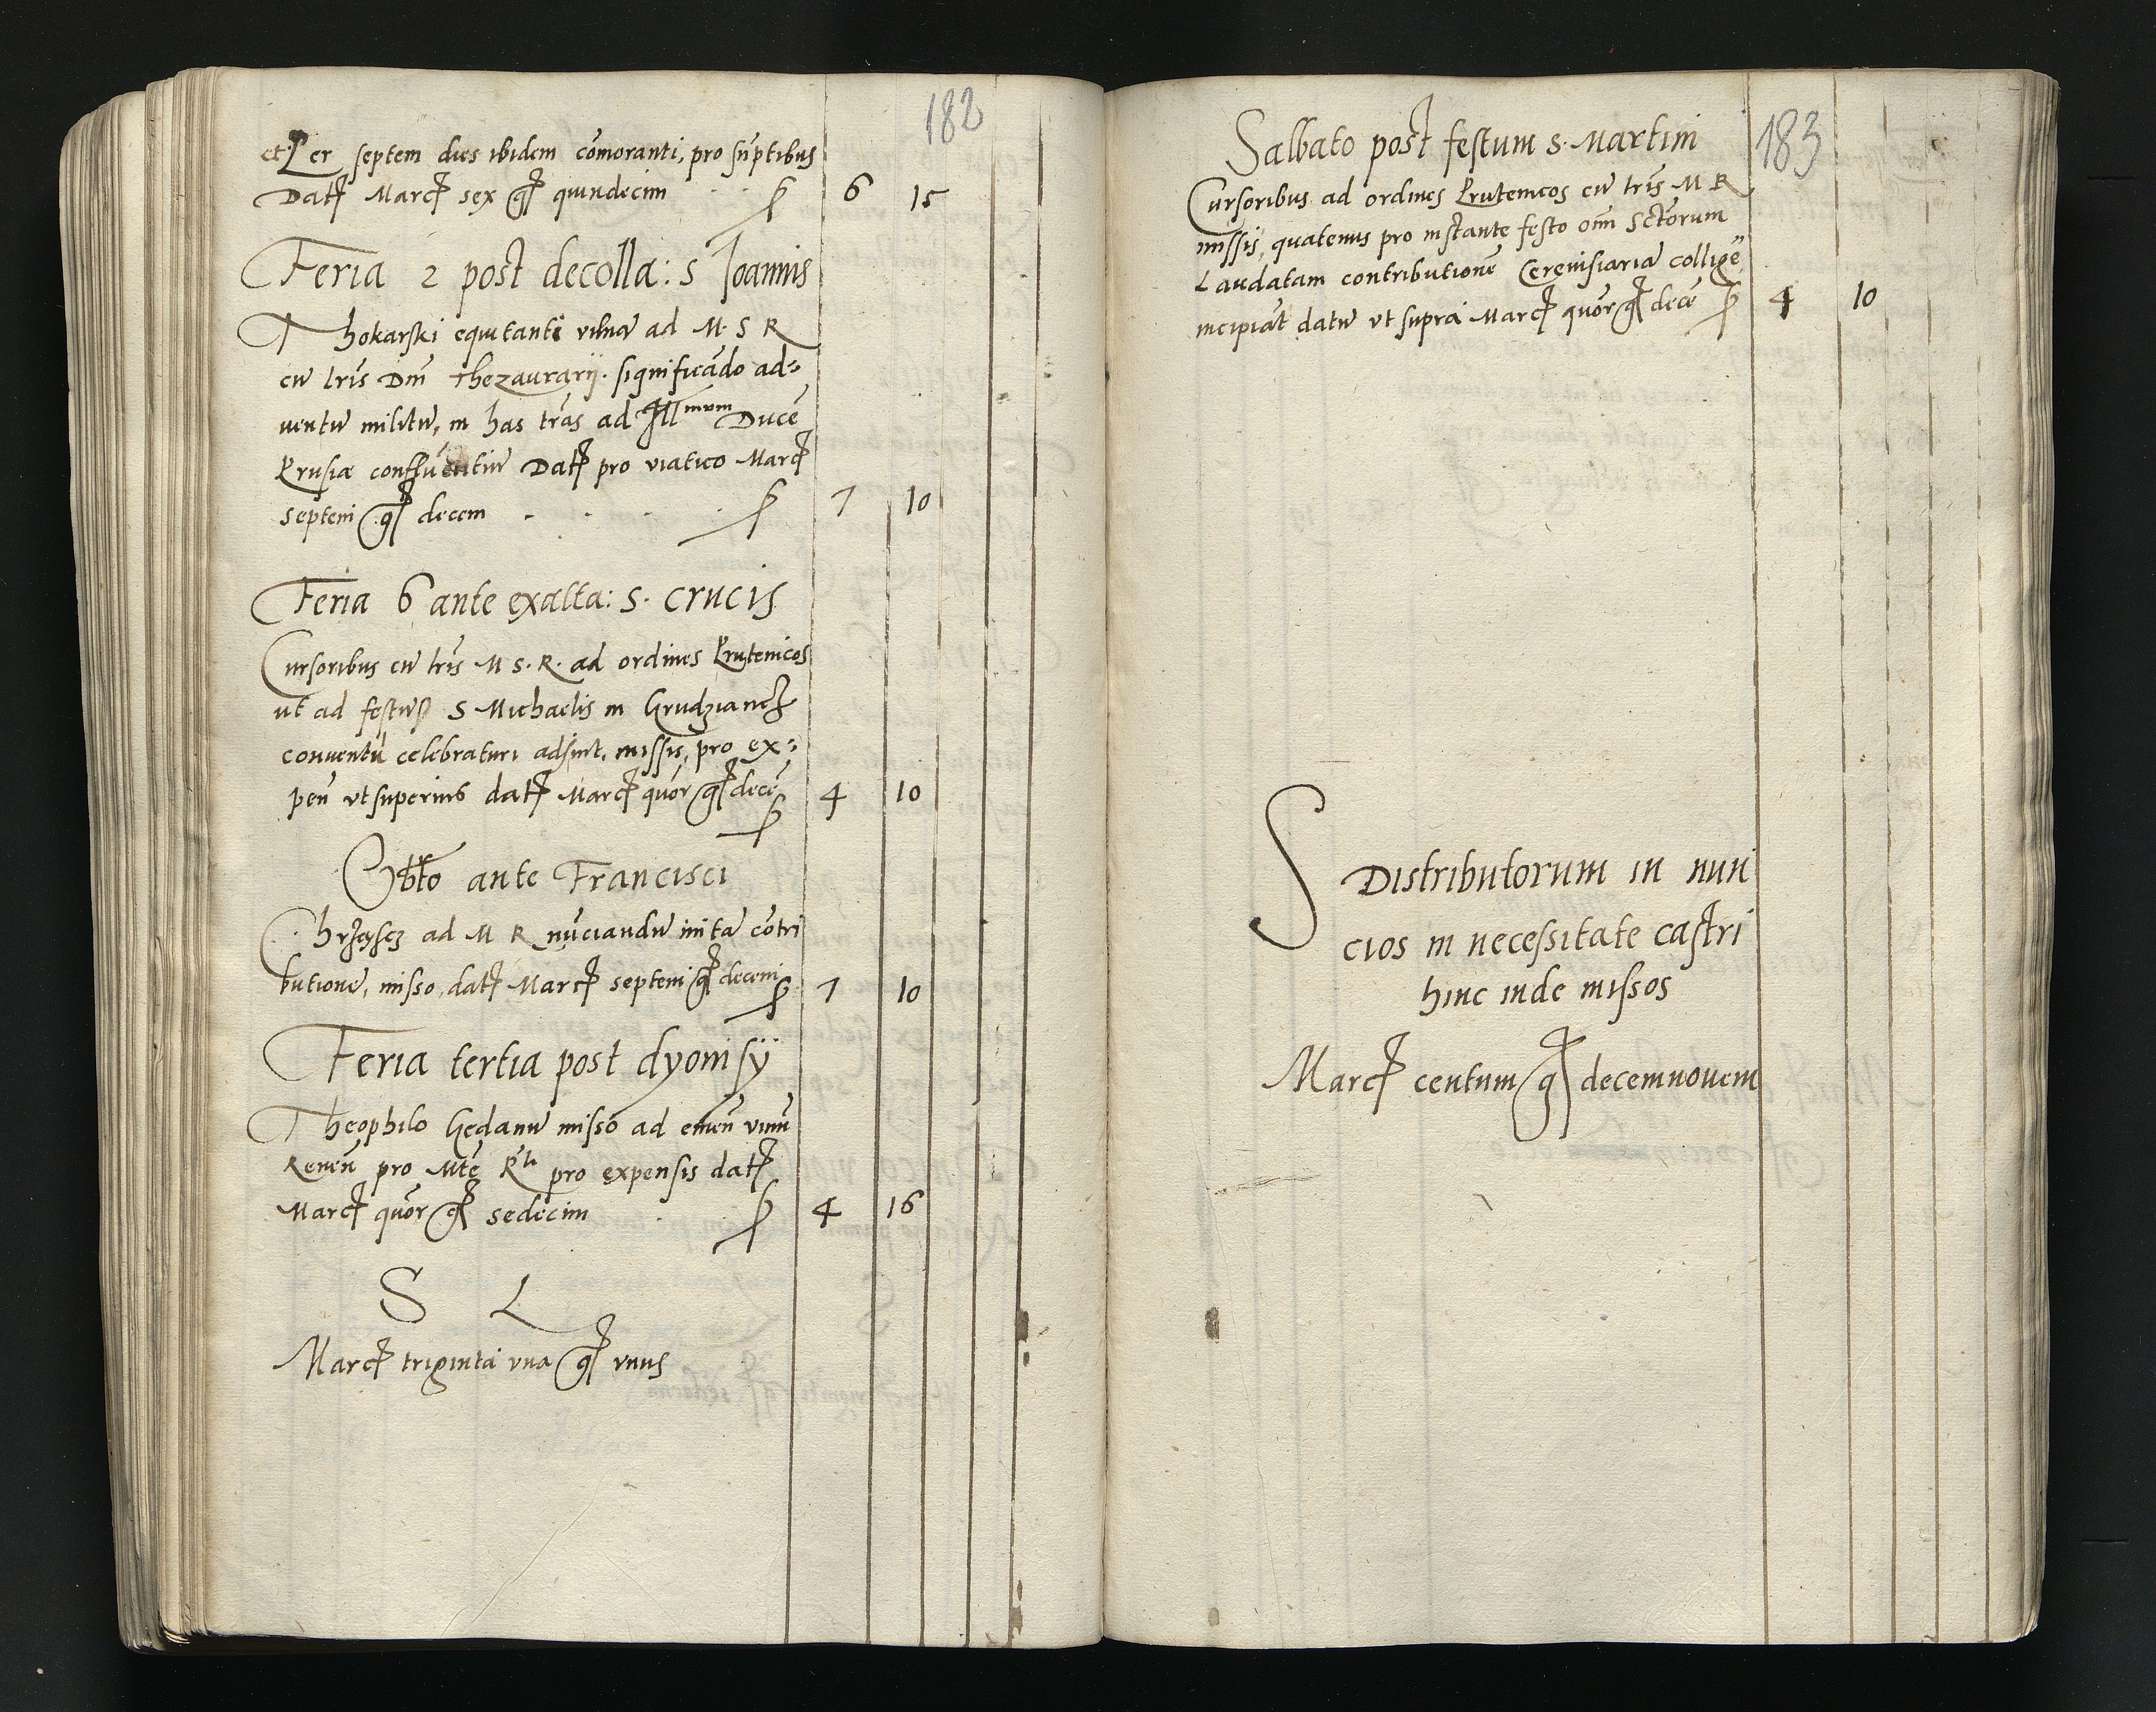 182
et Per septem dies ibidem cōmoranti, pro sūptibus
Datȝ Marcȝ sex gȝ quindecim 6 15
Feria 2 post decolla: S Joannis
Thokarski equitanti vilnā ad M. S R
cū lrīs Dnī Thezaurarij. significādo ad=
uentū militū, in has trās ad Illmum Ducē
Prusiæ confluentiū Datȝ pro viatico Marcȝ
septem gȝ decem 7 10
Feria 6 ante exalta: S. crucis
Cursoribus cū lrīs M S. R. ad ordines Prutenicos
ut ad festum S Michaelis in Grudziancȝ
conuentū celebraturi adsint, missis, pro ex=
peñ vt superius datȝ Marcȝ quōr gȝ decē 4 10
Sbtō ante Francisci
ad M R nūciandū initā cōtri
butionē, misso, datȝ Marcȝ septem gȝ decem 7 10
Feria tertia post dyonisÿ
Theophilo Gedanū misso ad emeñ vinū
Reneñ pro Mtē R pro expensis datȝ
Marcȝ quōr gȝ sedecim 4 16
S L
Marcȝ triginta vna gȝ vnus
183
Sabbato post festum S. Martini
Cursoribus ad ordines Prutenicos cū lrīs M R
missis, quatenus pro instante festo oīm Sctōrum
Laudatam contributionē Cereuisiariā collige
incipiāt datū vt supra Marcȝ quōr gȝ decē 4 10
S Distributorum in nun
cios in necessitate castri
hinc inde missos
Marcȝ centum gȝ decemnouem